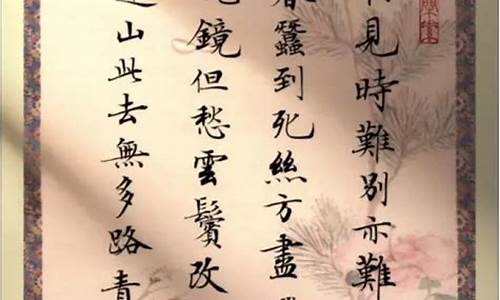 見時難別亦難
春蠶到死絲方盡
鏡但愁雲鬢改
山此去無多路青